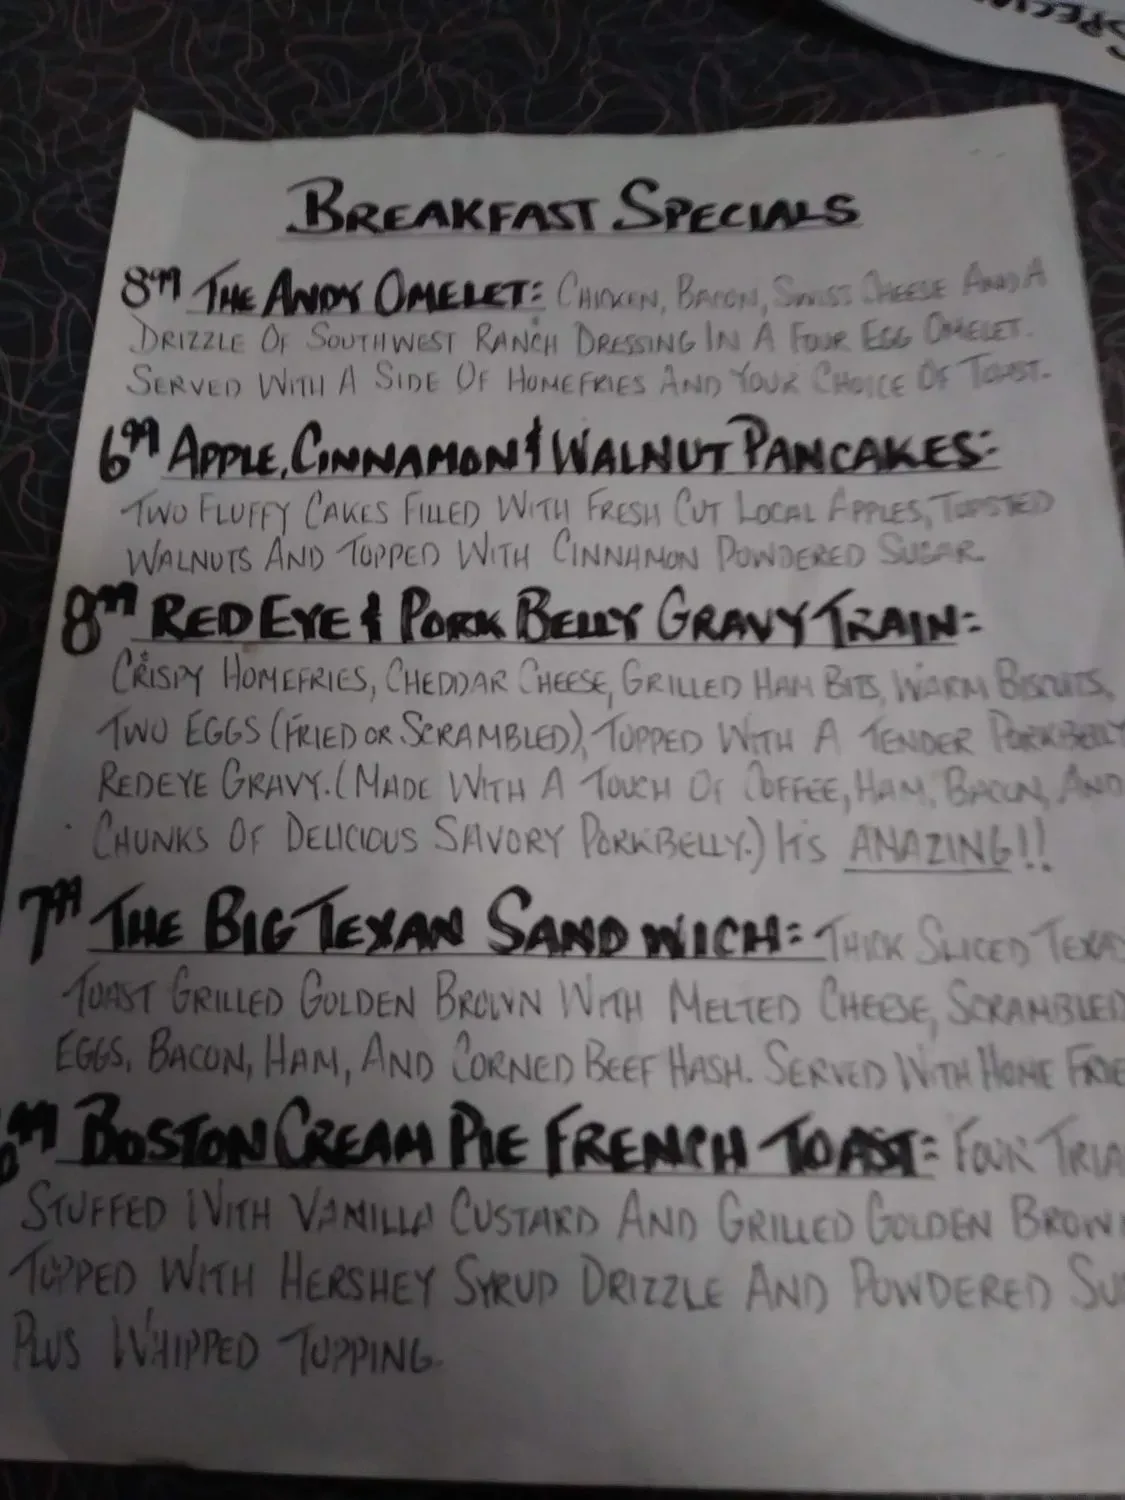 SPECIA
BREAKFAST SPECIALS
8⁹⁹ THE ANDY OMELET: CHICKEN, BACON, SWISS CHEESE AND A
DRIZZLE OF SOUTHWEST RANCH DRESSING IN A FOUR EGG OMELET.
SERVED WITH A SIDE OF HOMEFRIES AND YOUR CHOICE OF TOAST.
6⁹⁹ APPLE, CINNAMON & WALNUT PANCAKES:
TWO FLUFFY CAKES FILLED WITH FRESH CUT LOCAL APPLES, TOASTED
WALNUTS AND TOPPED WITH CINNAMON POWDERED SUGAR.
8⁹⁹ RED EYE & PORK BELLY GRAVY TRAIN:
CRISPY HOMEFRIES, CHEDDAR CHEESE, GRILLED HAM BITS, WARM BISCUITS,
TWO EGGS (FRIED OR SCRAMBLED), TOPPED WITH A TENDER PORKBELLY
REDEYE GRAVY. (MADE WITH A TOUCH OF COFFEE, HAM, BACON, AND
CHUNKS OF DELICIOUS SAVORY PORKBELLY.) IT'S AMAZING!!
7⁹⁹ THE BIG TEXAN SANDWICH: THICK SLICED TEXA
TOAST GRILLED GOLDEN BROWN WITH MELTED CHEESE, SCRAMBLED
EGGS, BACON, HAM, AND CORNED BEEF HASH. SERVED WITH HOME FRIE
⁹⁹ BOSTON CREAM PIE FRENCH TOAST: FOUR TRIA
STUFFED WITH VANILLA CUSTARD AND GRILLED GOLDEN BROWN
TOPPED WITH HERSHEY SYRUP DRIZZLE AND POWDERED SU
PLUS WHIPPED TOPPING.